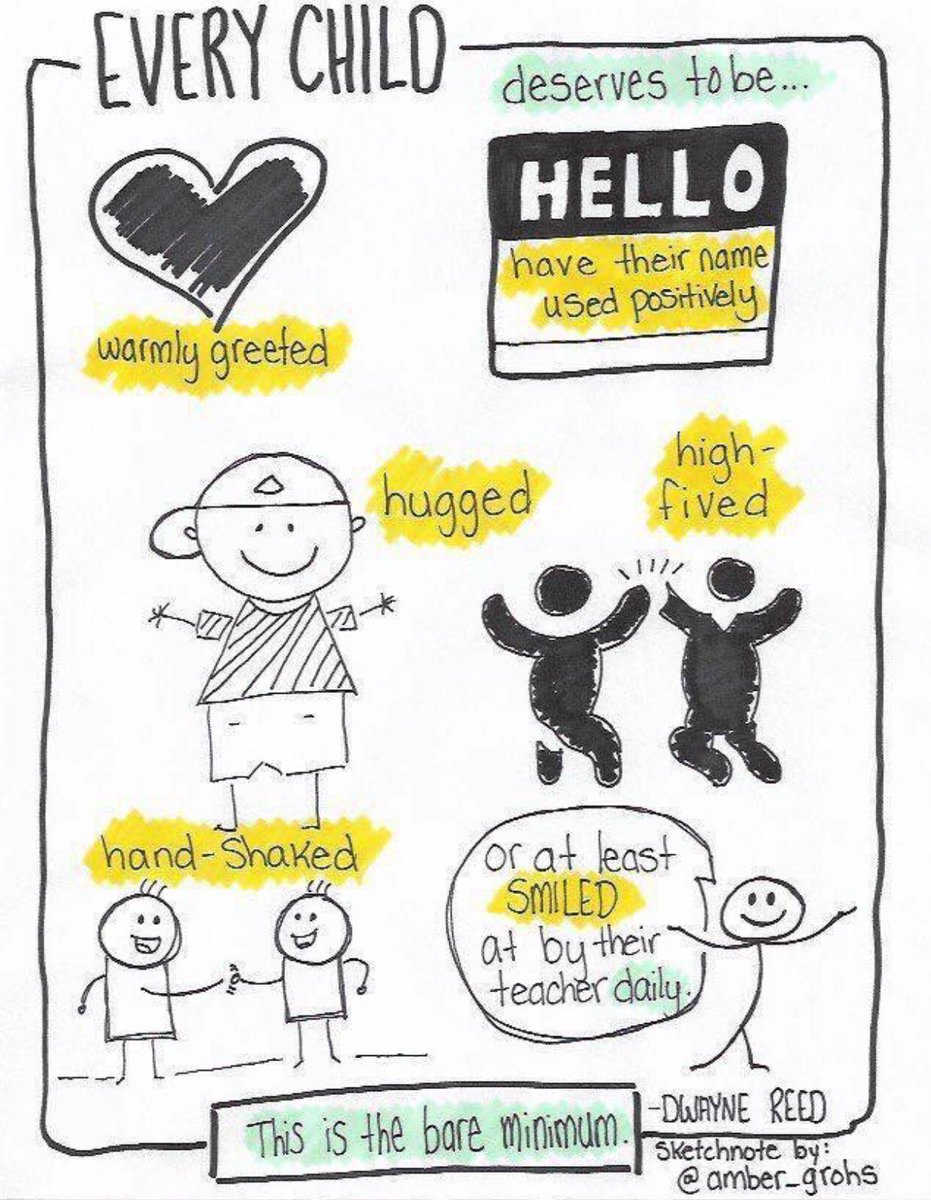 EVERY CHILD
deserves to be...
HELLO
have their name
used positively
warmly greeted
hugged
high-
fived
hand-shaked
or at least
SMILED
at by their
teacher daily.
This is the bare minimum.
-DWAYNE REED
Sketchnote by:
@amber_grohs